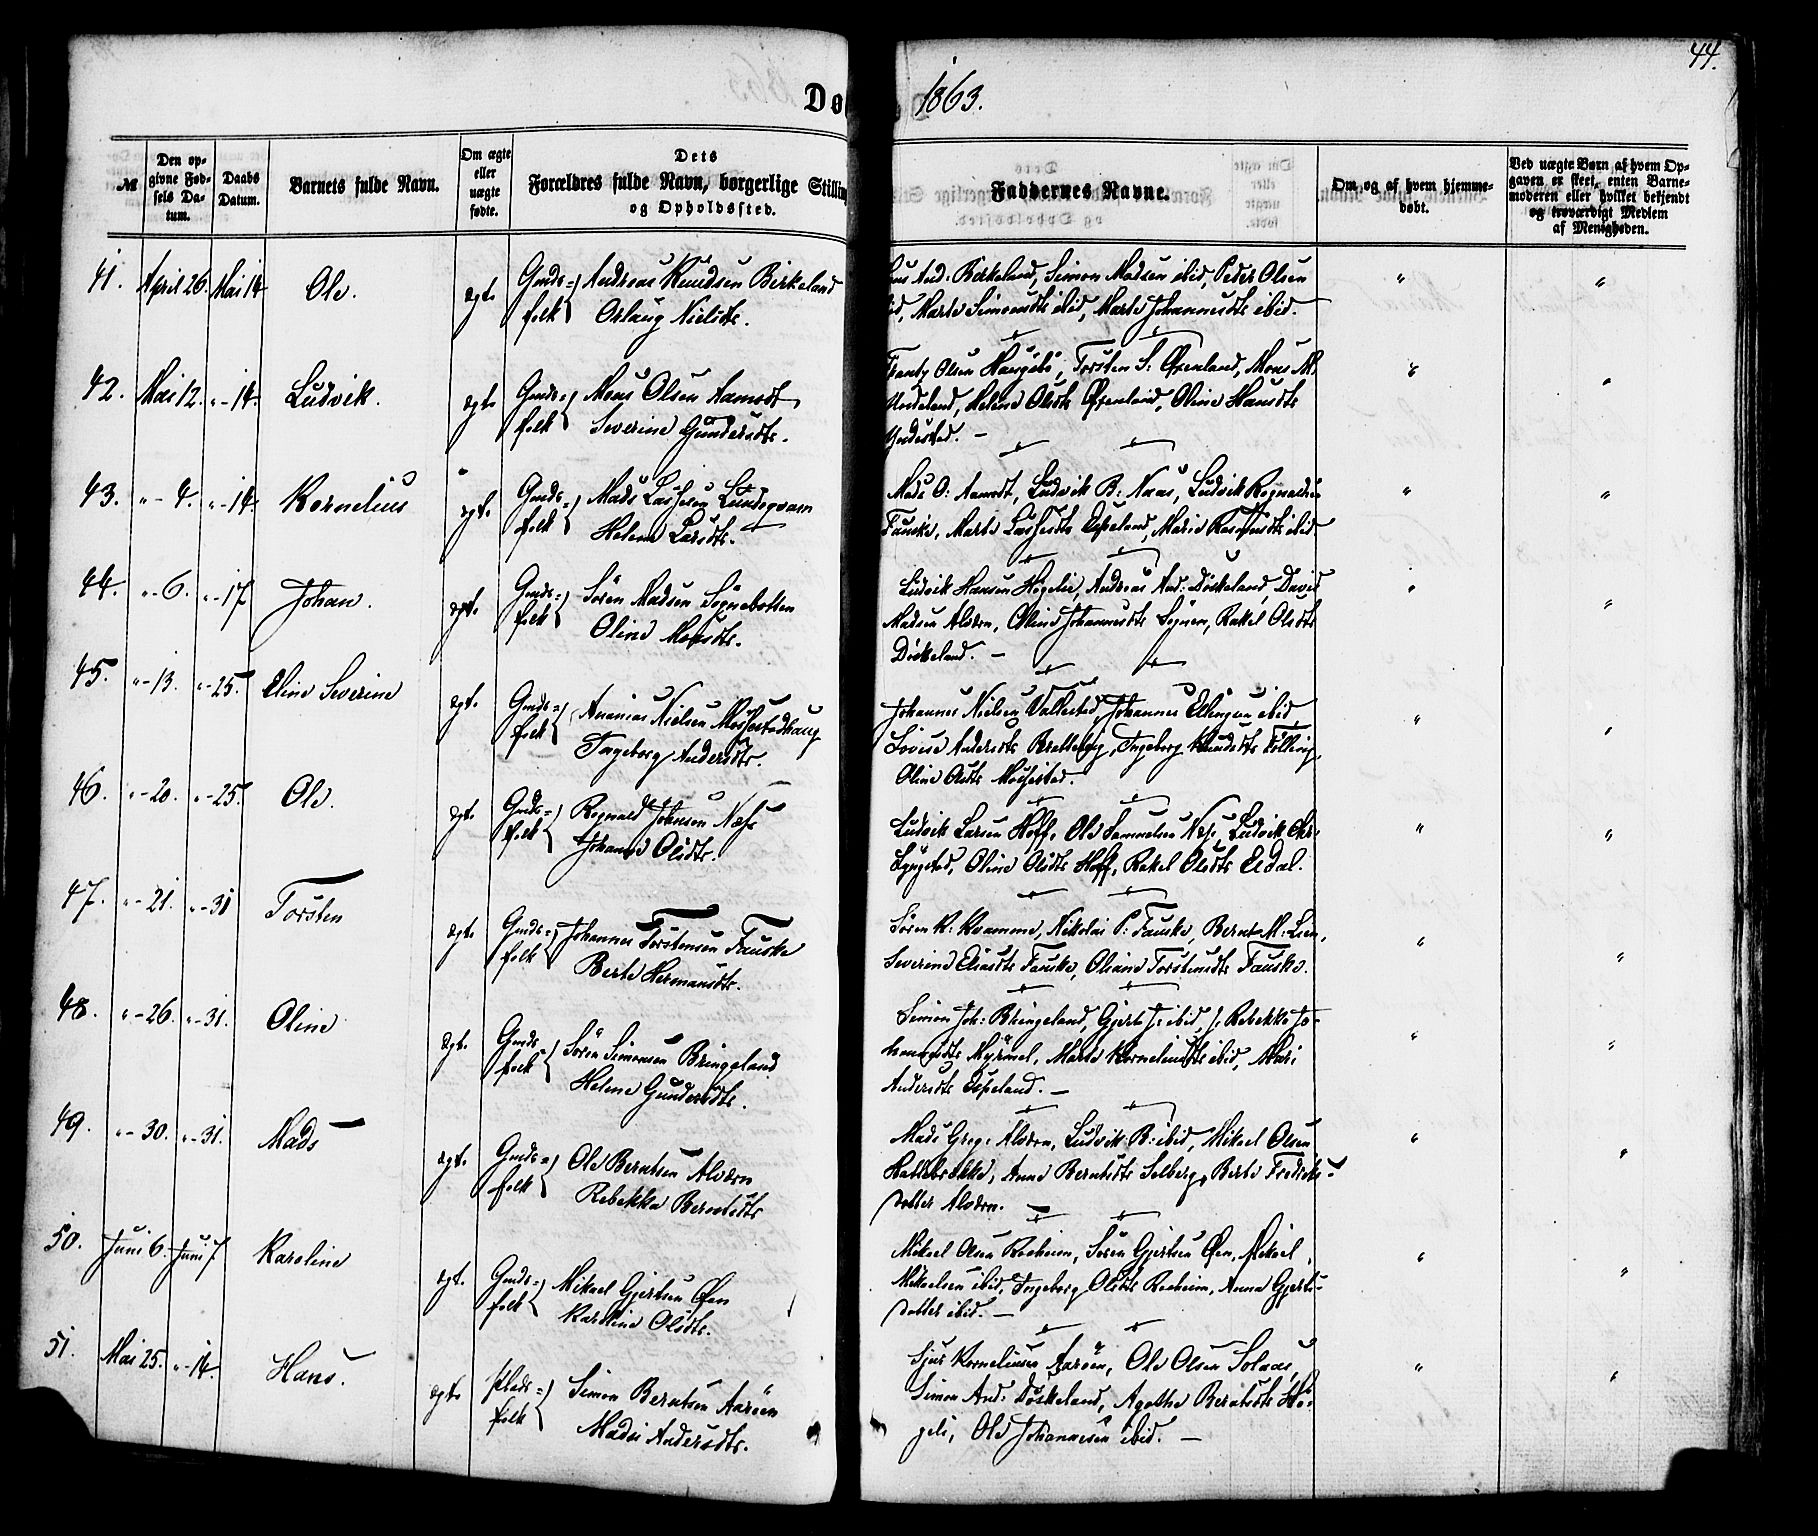 44.
Dø
1863.
№
Den opgivne Fødsels Datum.
Daabs Datum.
Barnets fulde Navn.
Om ægte eller uægte fødte.
Dets Forældres fulde Navn, borgerlige Stilling og Opholdssted.
Faddernes Navne.
Om og af hvem hjemmedøbt.
Ved uægte Børn af hvem Opgaven er skeet, enten Barnemoderen eller hvilket bekjendt og troværdigt Medlem af Menigheden.
41. April 26. Mai 14 Ole. ægte Gmds= folk { Andreas Knudsen Birkeland
Oslaug Nielsdtr.
And: Birkeland, Simon Madsen ibid, Peder Olsen
Marte Simonsdtr ibid, Marte Johannesdtr ibid.
42. Mai 12. "-14. Ludvik. ægte Gmds= folk { Mons Olsen Aamodt
Severine Gundersdtr.
Frantz Olsen Haugsbø, Torsten S. Øxenland, Mons M.
Undeland, Helene Olsdtr Øxenland, Oline Hansdtr
Yndestad. -
43. "-4. "-14. Kornelius ægt. Gmds= folk { Mads Lassesen Lundeqvam
Helene Larsdtr.
Mads O: Aamodt, Ludvik B: Naas, Ludvik Rognaldsen
Fauske, Marte Lassesdtr Espeland, Marie Rasmusdtr ibid.
44. "-6. "-17 Johan. ægt. Gmds= folk { Sören Madsen Sögnebotten
Oline Monsdtr.
Ludvik Hansen Högelie, Andreas And: Döskeland, David
Madsen Alvörn, Oline Johannesdtr Sögnen, Rakel Olsdtr
Döskeland. -
45. "-13. "-25. Eline Severine ægt. Gmds= folk { Ananias Nielsen Mossestadhaug
Ingeborg Andersdtr.
Johannes Nielsen Vallestad, Johannes Ellingsen ibid,
Lovise Andersdtr Brettebög, Ingeborg Knudsdtr Fölling,
Oline Olsdtr Mossestad.
46. "-20. "-25. Ole. ægt. Gmds= folk { Rognald Johnsen Næss
Johanne Olsdtr.
Ludvik Larsen Hoff, Ole Sammelsen Næs, Ludvik Chr:
Lyngstad, Oline Olsdtr Hoff, Rakel Olsdtr Eldal.
47. "-21. "-31 Torsten ægt. Gmds= folk { Johannes Torstensen Fauske
Berte Hermansdtr.
Sören K: Kvamme, Nikolai P: Fauske, Bernt M: Lien,
Severine Eliasdtr Fauske, Oliane Torstensdtr Fauske.
48. "-26. "-31. Oline ægt. Gmds= folk { Sörin Simonsen Bringeland
Helene Gundersdtr.
Simon Joh: Bringeland, Gjert J: ibid, Rebekka Jo-
hannesdtr Myrmel, Marte Korneliusdtr ibid, Mari
Andersdtr Espeland. -
49. "-30. "-31. Mads ægt. Gmds= folk { Ole Berntsen Alvörn
Rebekka Berntsdtr
Mads Greg: Alvörn, Ludvik B: ibid, Mikael Olsen
Hallebrekke, Anne Berntsdtr Solberg, Berte Fredriks-
datter Alvörn.
50. Juni 6. Juni 7 Karoline ægt. Gmds= folk { Mikael Gjertsen Öen
Karoline Olsdtr.
Mikael Olsen Roeheim, Sören Gjertsen Öen, Mikael
Mikaelsen ibid, Ingeborg Olsdtr Roeheim, Anna Gjerts-
datter ibid. -
51. Mai 25. "-14. Hans. ægte Plads= folk { Simon Berntsen Aaröen
Madsi Andersdtr.
Sjur Korneliusen Aaröen, Ole Olsen Solaas,
Simon And: Döskeland, Agathe Berntsdtr Hö-
geli, Ole Johannesen ibid. -